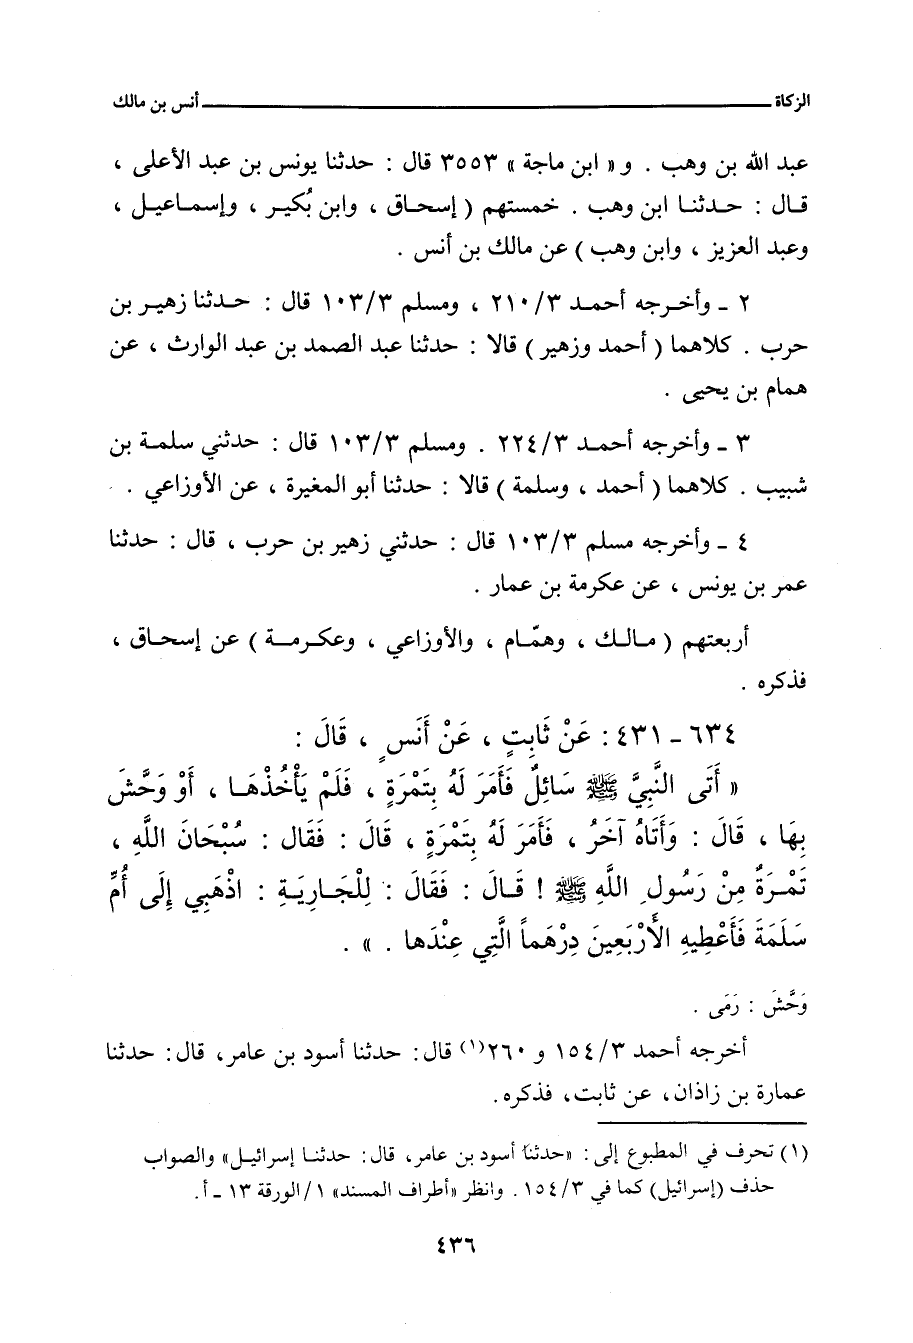 الزكاة ــــــــــ أنس بن مالك
عبد الله بن وهب . و « ابن ماجة » ٣٥٥٣ قال : حدثنا يونس بن عبد الأعلى ،
قال : حدثنا ابن وهب . خمستهم ( إسحاق ، وابن بُكير ، وإسماعيل ،
وعبد العزيز ، وابن وهب ) عن مالك بن أنس .
٢ ـ وأخرجه أحمد ٢١٠/٣ ، ومسلم ١٠٣/٣ قال : حدثنا زهير بن
حرب . كلاهما ( أحمد وزهير ) قالا : حدثنا عبد الصمد بن عبد الوارث ، عن
همام بن يحيى .
٣ ـ وأخرجه أحمد ٢٢٤/٣ . ومسلم ١٠٣/٣ قال : حدثني سلمة بن
شبيب . كلاهما ( أحمد ، وسلمة ) قالا : حدثنا أبو المغيرة ، عن الأوزاعي .
٤ ـ وأخرجه مسلم ١٠٣/٣ قال : حدثني زهير بن حرب ، قال : حدثنا
عمر بن يونس ، عن عكرمة بن عمار .
أربعتهم ( مالك ، وهمّام ، والأوزاعي ، وعكرمة ) عن إسحاق ،
فذكره .
٦٣٤ ـ ٤٣١ : عَنْ ثَابِتٍ ، عَنْ أَنَسٍ ، قَالَ :
« أَتَى النَّبِيَّ ﷺ سَائِلٌ فَأَمَرَ لَهُ بِتَمْرَةٍ ، فَلَمْ يَأْخُذْهَا ، أَوْ وَحَّشَ
بِهَا ، قَالَ : وَأَتَاهُ آخَرُ ، فَأَمَرَ لَهُ بِتَمْرَةٍ ، قَالَ : فَقَال : سُبْحَانَ اللَّهِ ،
تَمْرَةٌ مِنْ رَسُولِ اللَّهِ ﷺ ! قَالَ : فَقَالَ : لِلْجَارِيَةِ : اذْهَبِي إِلَى أُمِّ
سَلَمَةَ فَأَعْطِيهِ الأَرْبَعِينَ دِرْهَماً الَّتِي عِنْدَها . » .
وَحَّشَ : رَمَى .
أخرجه أحمد ١٥٤/٣ و ٢٦٠(١) قال: حدثنا أسود بن عامر، قال: حدثنا
عمارة بن زاذان، عن ثابت، فذكره.
(١) تحرف في المطبوع إلى: «حدثنا أسود بن عامر، قال: حدثنا إسرائيل» والصواب
حذف (إسرائيل) كما في ١٥٤/٣ . وانظر «أطراف المسند» ١/الورقة ١٣ ـ أ.
٤٣٦